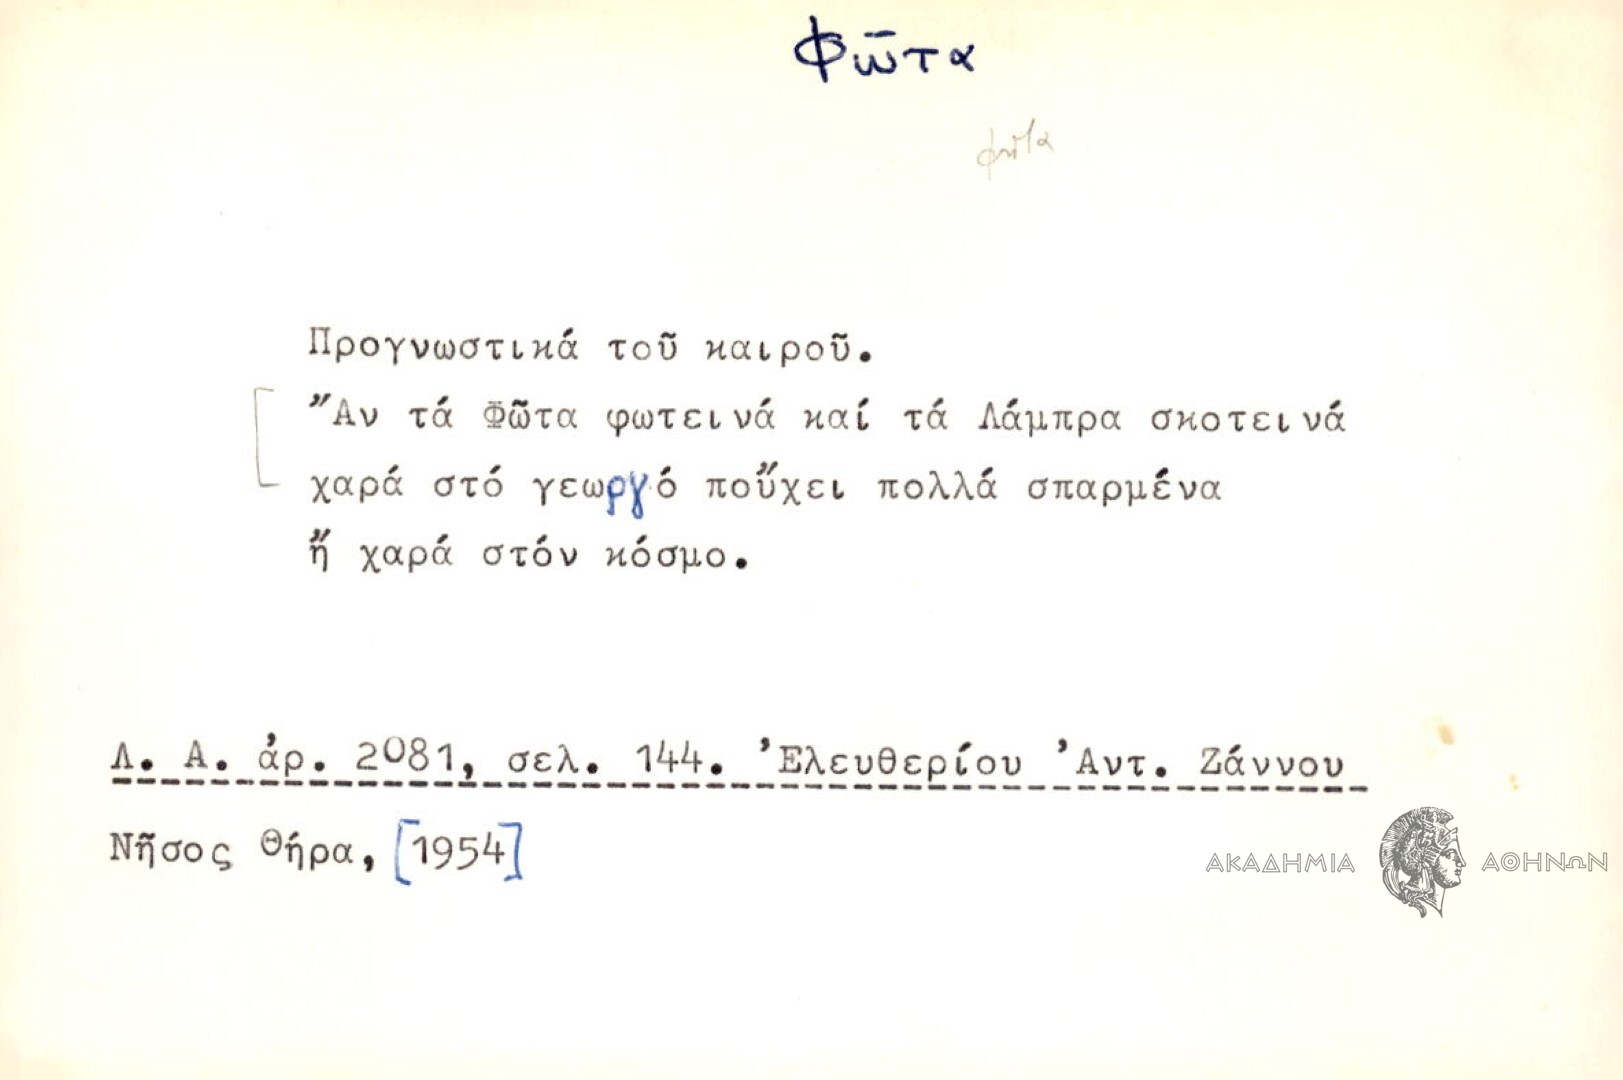 Φῶτα
φῶτα
Προγνωστικά τοῦ καιροῦ.
Ἄν τά Φῶτα φωτεινά καί τά Λάμπρα σκοτεινά
χαρά στό γεωργό ποὔχει πολλά σπαρμένα
ἤ χαρά στόν κόσμο.
Λ. Α. ἀρ. 2081, σελ. 144. Ἐλευθερίου Ἀντ. Ζάννου
Νῆσος Θήρα, [1954]
ΑΚΑΔΗΜΙΑ ΑΘΗΝΩΝ